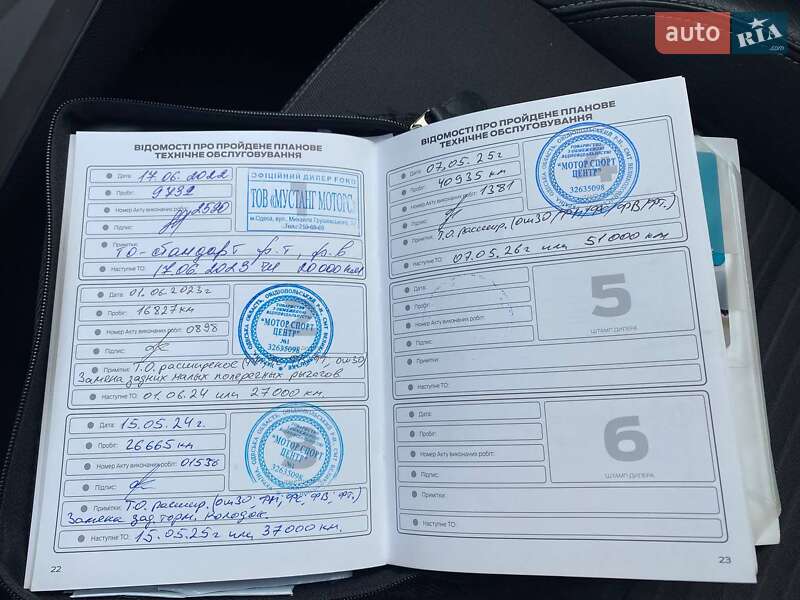 auto RIA.com
ВІДОМОСТІ ПРО ПРОЙДЕНЕ ПЛАНОВЕ
ТЕХНІЧНЕ ОБСЛУГОВУВАННЯ
Дата: 17.06 2022
Пробіг: 9732
Номер Акту виконаних робіт: 2590
Підпис:
Примітки:
ТО-стандарт р.т, р.в
Наступне ТО: 17.06.2023 20000 км
ОФІЦІЙНИЙ ДИЛЕР FORD
ТОВ «МУСТАНГ МОТОРС»
м.Одеса, вул. Михайла Грушевського,
Дата: 01.06.2023г
Пробіг: 16827 км
Номер Акту виконаних робіт: 0898
Підпис:
Примітки: Т.О. расширеное
Замена задних малых поперечных рычагов
Наступне ТО: 01.06.24 или 27000 км.
"МОТОР СПОРТ
ЦЕНТР"
№1
32635098
Дата: 15.05.24г.
Пробіг: 26665 км
Номер Акту виконаних робіт: 01536
Підпис:
Примітки: Т.О. расшир. (ом30
Замена зад. торм. колодок
Наступне ТО: 15.05.25г или 37000 км.
"МОТОР СПОРТ
ЦЕНТР"
32635098
22
ВІДОМОСТІ ПРО ПРОЙДЕНЕ ПЛАНОВЕ
ТЕХНІЧНЕ ОБСЛУГОВУВАННЯ
Дата: 07.05.25г
Пробіг: 40935 км
Номер Акту виконаних робіт: 1381
Підпис:
Примітки: Т.О. расшир. (ом30
Наступне ТО: 07.05.26г или 51000 км.
ТОВАРИСТВО
З ОБМЕЖЕНОЮ
ВІДПОВІДАЛЬНІСТЮ
"МОТОР СПОРТ
ЦЕНТР"
32635098
Дата:
Пробіг:
Номер Акту виконаних робіт:
Підпис:
Примітки:
Наступне ТО:
5
ШТАМП ДИЛЕРА
Дата:
Пробіг:
Номер Акту виконаних робіт:
Підпис:
Примітки:
Наступне ТО:
6
ШТАМП ДИЛЕРА
23